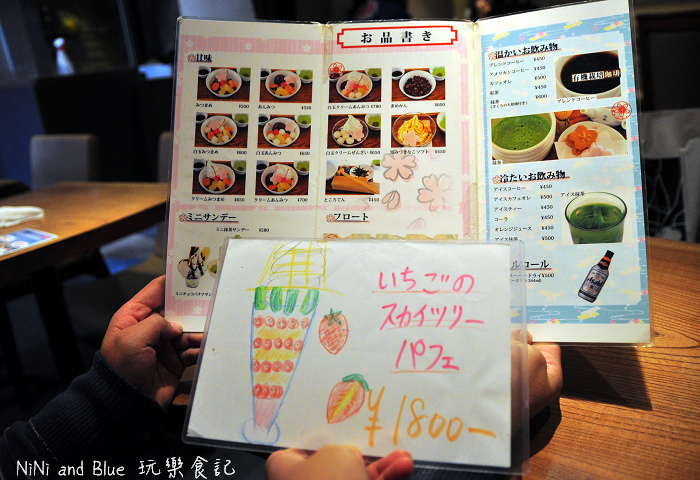 お品書き
甘味
みつまめ ¥500
あんみつ ¥550
白玉クリームあんみつ ¥780
まめかん ¥500
白玉みつまめ ¥600
白玉あんみつ ¥650
白玉クリームぜんざい ¥750
クリームみつまめ ¥650
クリームあんみつ ¥700
ところてん ¥450
ミニサンデー
ミニ抹茶サンデー ¥380
ミニチョコバナナサンデー
フロート
温かいお飲み物
ブレンドコーヒー ¥450
アメリカンコーヒー ¥450
カフェオレ ¥500
紅茶 ¥450
抹茶 ¥600
有機栽培珈琲
ブレンドコーヒー
冷たいお飲み物
アイスコーヒー ¥450
アイスカフェオレ ¥500
アイスティー ¥450
コーラ ¥450
オレンジジュース ¥450
アイス抹茶 ¥500
アイス抹茶
いちごの
スカイツリー
パフェ
¥1800-
NiNi and Blue 玩樂食記